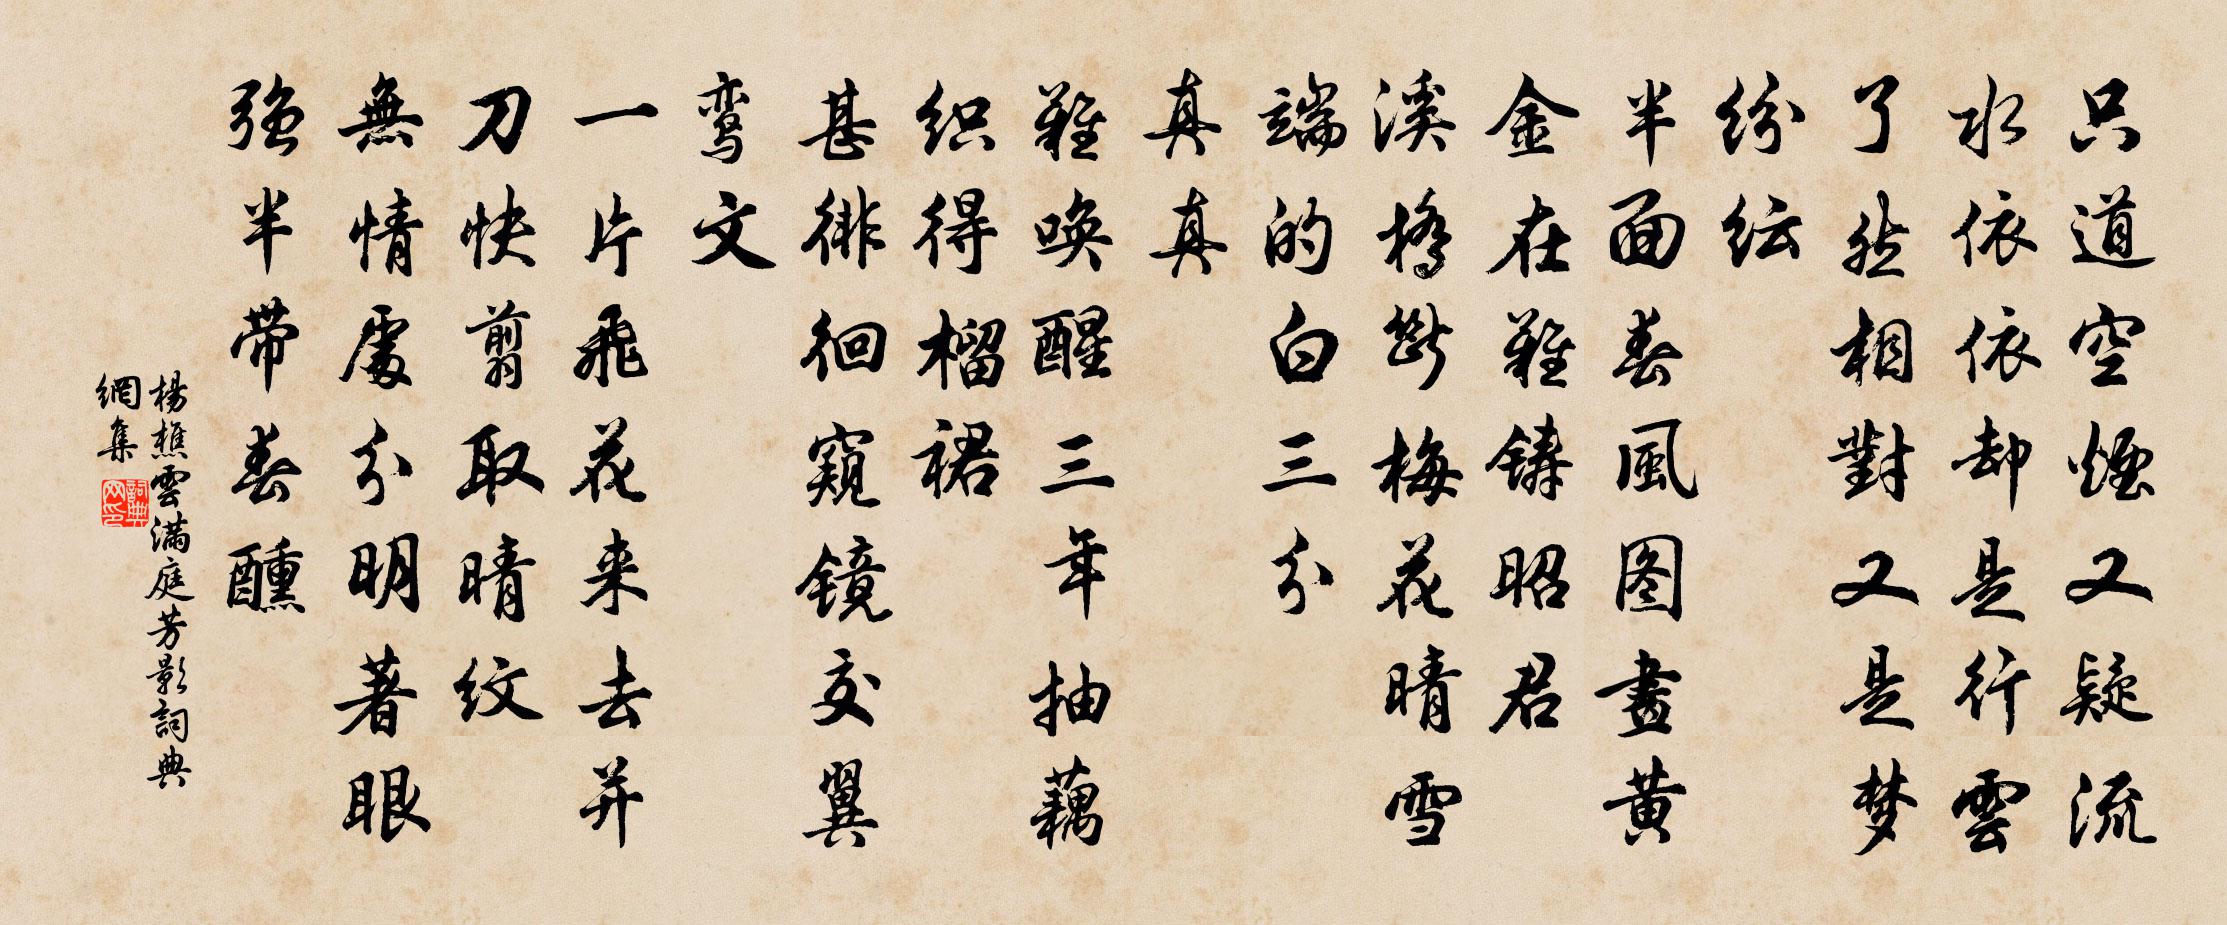 只道空煙又疑流
水依依却是行雲
了然相對又是梦
纷纭
半面春風图畫黄
金在難鑄昭君
溪橋斷梅花晴雪
端的白三分
真真
難唤醒三年抽藕
织得榴裙
甚徘徊窥镜交翼
鸾文
一片飛花来去并
刀快翦取晴纹
無情處分明著眼
强半带春醺
楊樵雲滿庭芳影詞典
網集
詞典网印